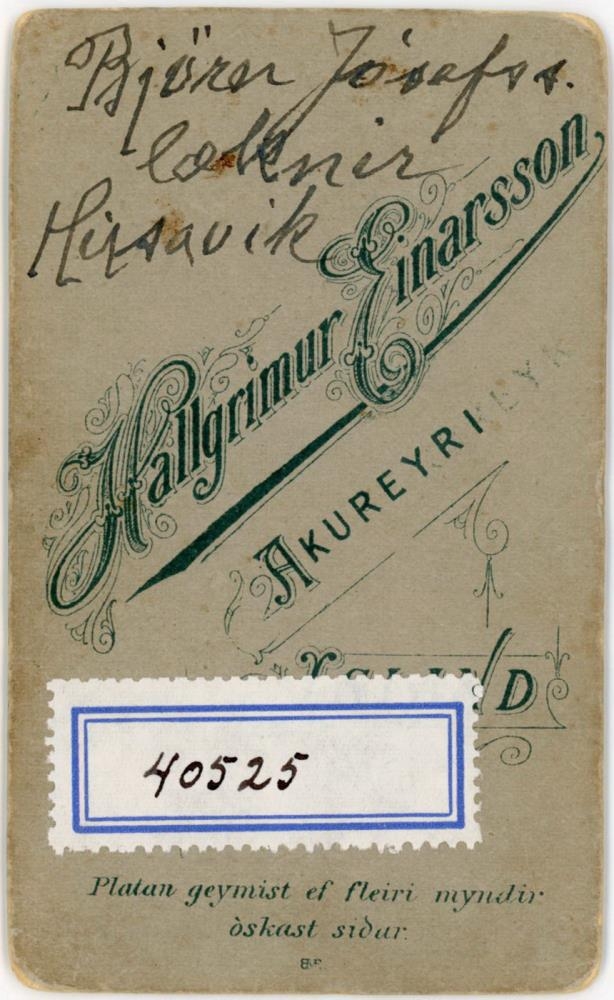 Björn Jósefss.
læknir
Húsavík
Hallgrimur Einarsson
AKUREYRI
D
40525
Platan geymist ef fleiri myndir
òskast siðar.